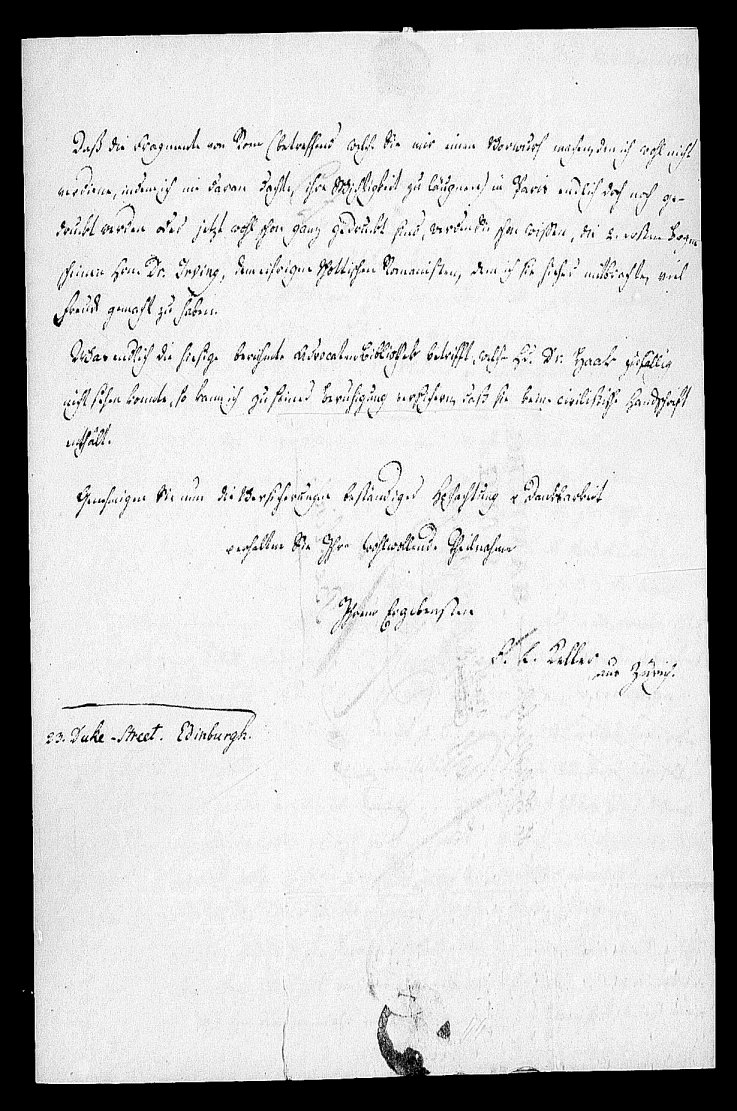 Daß die Fragmente von Rom (betreffend welche Sie mir einen Vorwurf machen, den ich wohl nicht
verdiene, indem ich nie daran dachte, ihre Wichtigkeit zu läugnen) in Paris endlich doch noch ge-
druckt werden oder jetzt wohl schon ganz gedruckt sind, werden Sie schon wissen, die 2 ersten
scheinen Hrn. Dr. Irving, dem eifrigen schottischen Romanisten, dem ich sie hieher mitbrachte, viel
Freude gemacht zu haben.
Was endlich die hiesige berühmte Advocaten Bibliothek betrifft, welche Hr. Dr. Haak zufällig
nicht sehen konnte, so kann ich zu seiner Beruhigung versichern, daß sie keine civilistische Handschrift
enthält.
Genehmigen Sie nun die Versicherungen beständiger Hochachtung & Dankbarkeit
erhalten Sie Ihre wohlwollende Theilnahme
Ihrem Ergebensten
F. L. Keller
aus Zürich.
23. Duke-Street. Edinburgh.